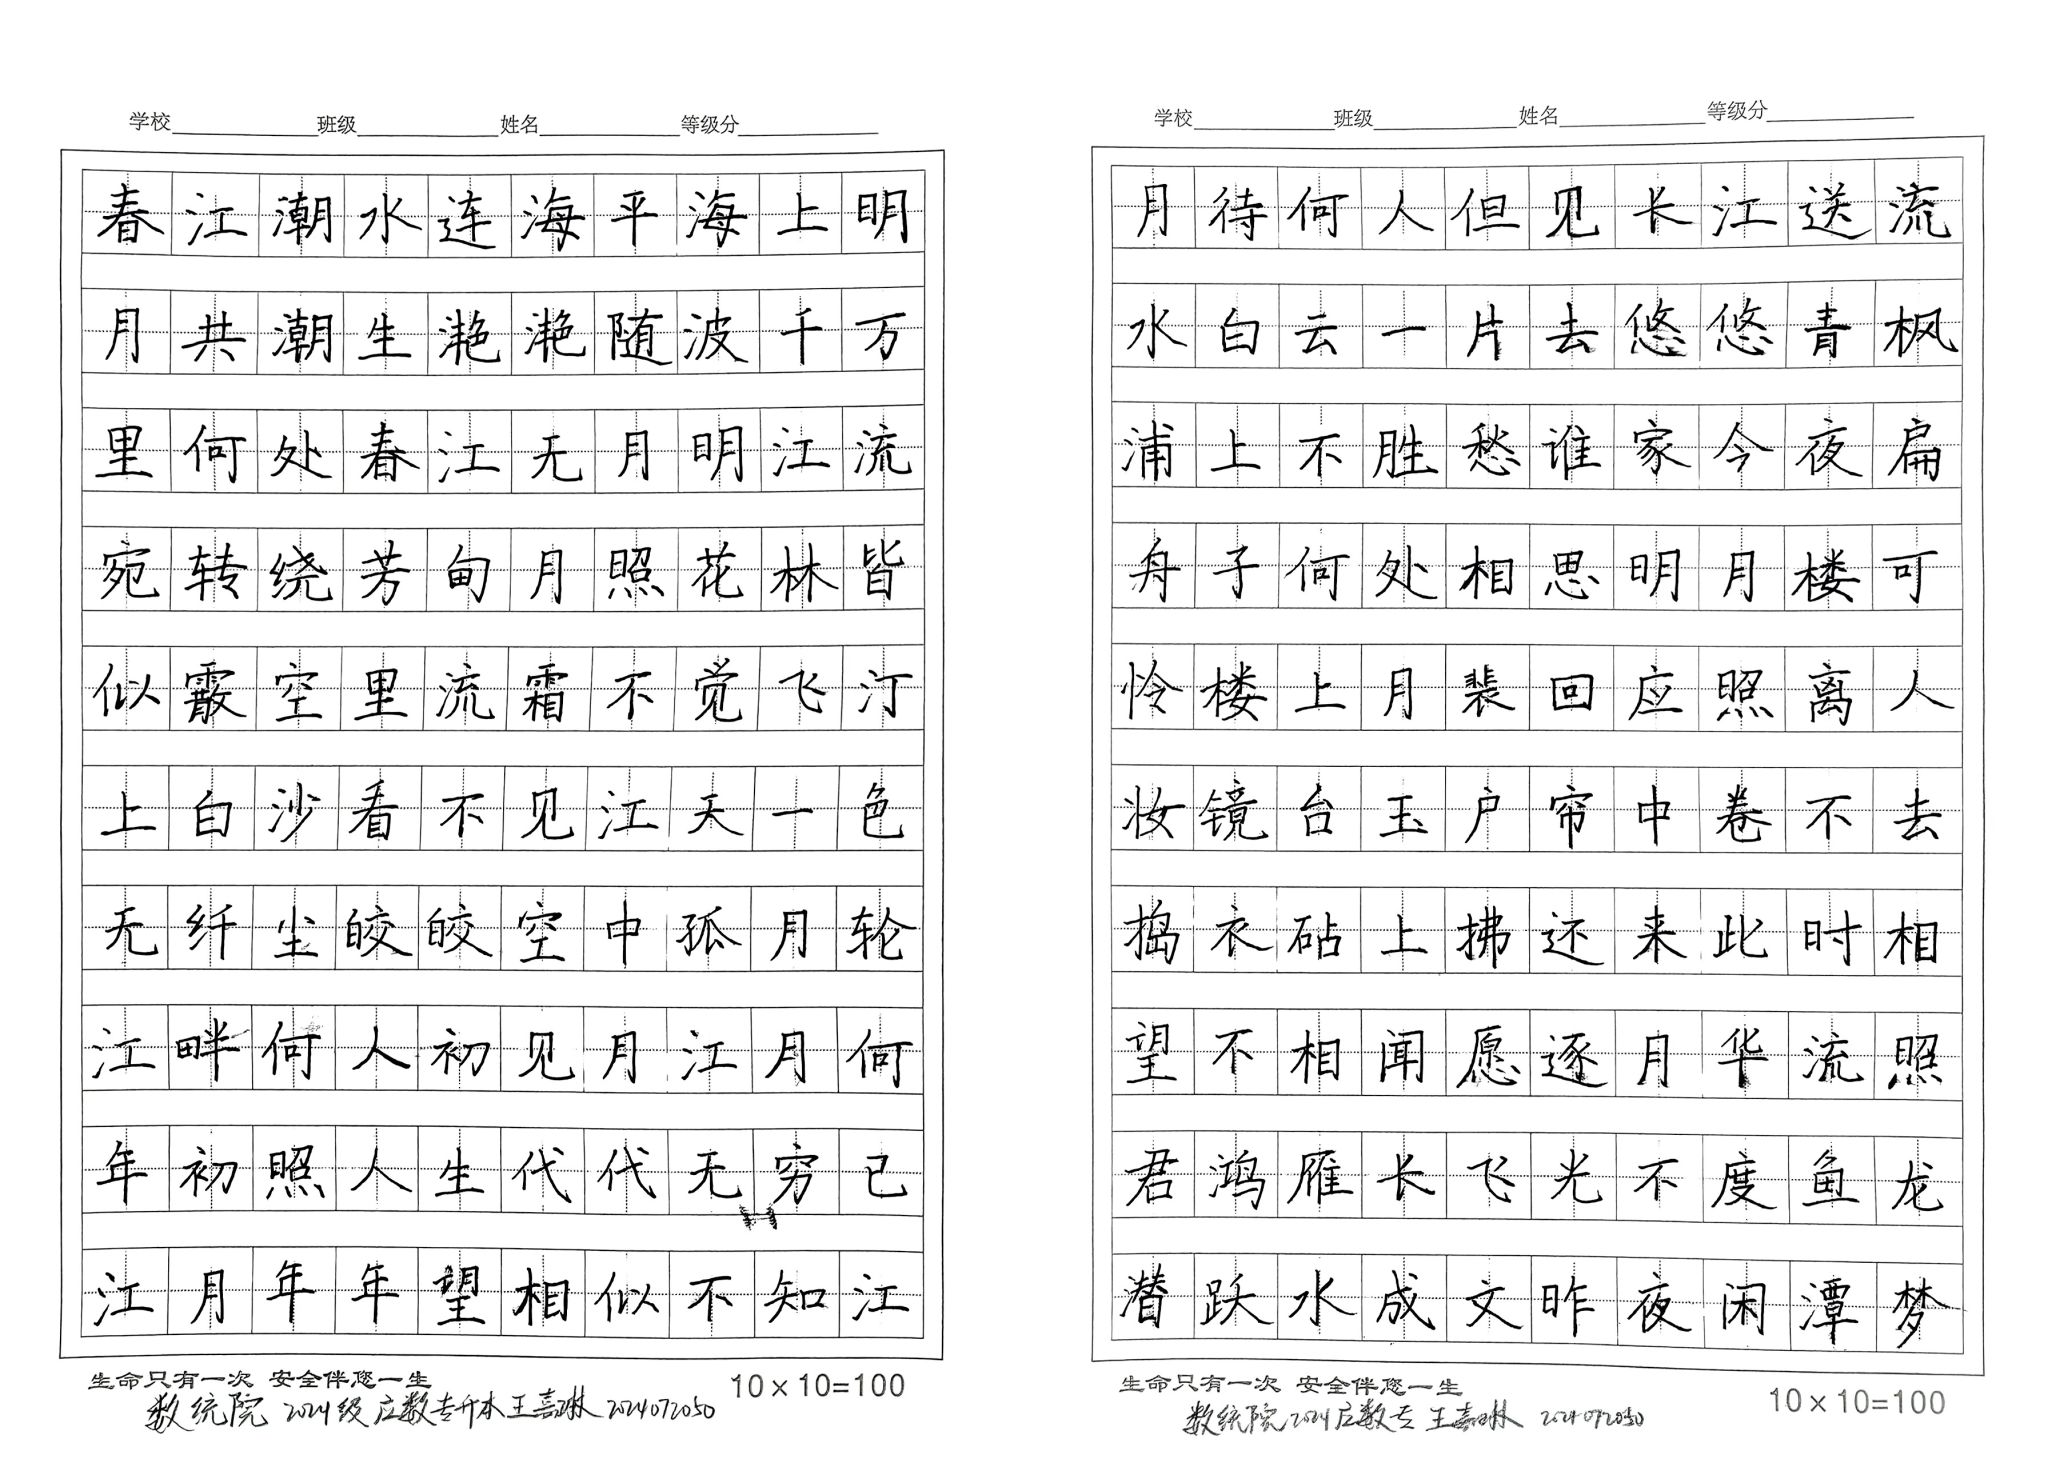 学校 班级 姓名 等级分
春江潮水连海平海上明
月共潮生滟滟随波千万
里何处春江无月明江流
宛转绕芳甸月照花林皆
似霰空里流霜不觉飞汀
上白沙看不见江天一色
无纤尘皎皎空中孤月轮
江畔何人初见月江月何
年初照人人生代代无穷已
江月年年望相似不知江
生命只有一次 安全伴您一生 10×10=100
数统院 2024级应数专升本王嘉琳 2024072050
学校 班级 姓名 等级分
月待何人但见长江送流
水白云一片去悠悠青枫
浦上不胜愁谁家今夜扁
舟子何处相思明月楼可
怜楼上月裴回应照离人
妆镜台玉户帘中卷不去
捣衣砧上拂还来此时相
望不相闻愿逐月华流照
君鸿雁长飞光不度鱼龙
潜跃水成文昨夜闲潭梦
生命只有一次 安全伴您一生 10×10=100
数统院2024应数专 王嘉琳 2024072050